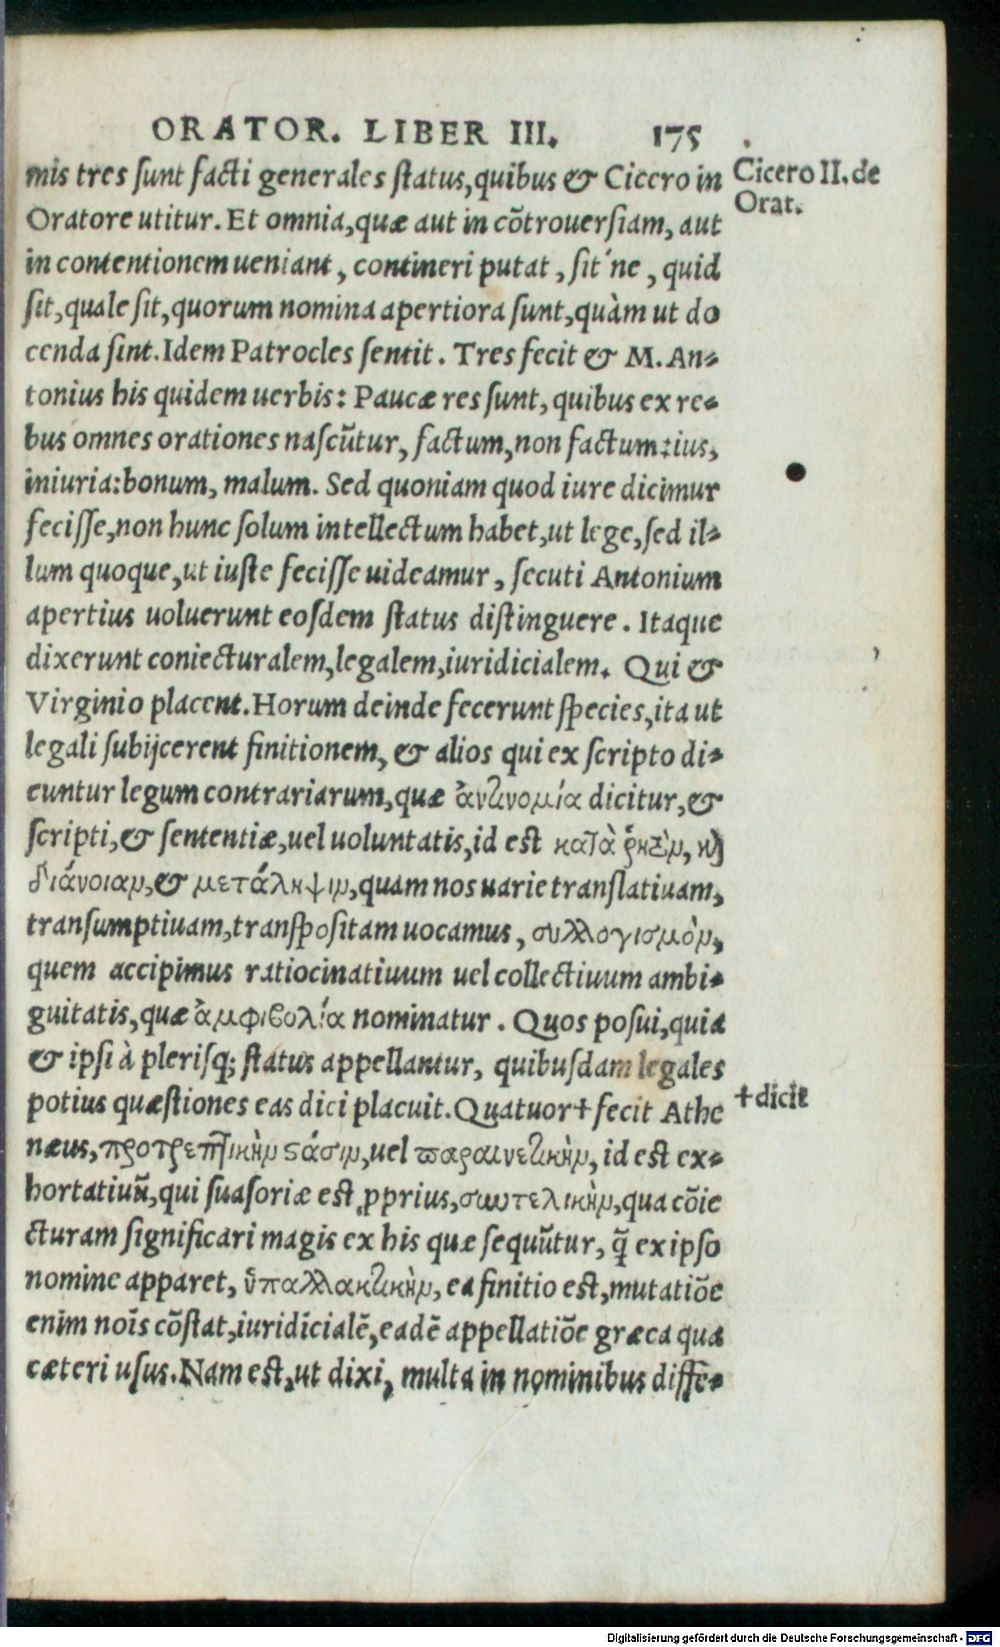 ORATOR. LIBER III. 175
mis tres sunt facti generales status, quibus & Cicero in
Cicero II. de
Orat.
Oratore utitur. Et omnia, quæ aut in cõtrouersiam, aut
in contentionem ueniant, contineri putat, sit'ne, quid
sit, quale sit, quorum nomina apertiora sunt, quàm ut do
cenda sint. Idem Patrocles sentit. Tres fecit & M. An-
tonius his quidem uerbis: Paucæ res sunt, quibus ex re-
bus omnes orationes nascũtur, factum, non factum: ius,
iniuria: bonum, malum. Sed quoniam quod iure dicimur
fecisse, non hunc solum intellectum habet, ut lege, sed il-
lum quoque, ut iuste fecisse uideamur, secuti Antonium
apertius uoluerunt eosdem status distinguere. Itaque
dixerunt coniecturalem, legalem, iuridicialem. Qui &
Virginio placent. Horum deinde fecerunt species, ita ut
legali subijcerent finitionem, & alios qui ex scripto di-
cuntur legum contrariarum, quæ ἀντινομία dicitur, &
scripti, & sententiæ, uel uoluntatis, id est κατὰ ῥητὸν, καὶ
διάνοιαν, & μετάληψιν, quam nos uarie translatiuam,
transumptiuam, transpositam uocamus, συλλογισμὸν,
quem accipimus ratiocinatiuum uel collectiuum ambi-
guitatis, quæ ἀμφιβολία nominatur. Quos posui, quia
& ipsi à plerisq; status appellantur, quibusdam legales
potius quæstiones eas dici placuit. Quatuor† fecit Athe
†dicit
næus, προτρεπτικὴν στάσιν, uel παραινετικὴν, id est ex-
hortatiuũ, qui suasoriæ est ꝓprius, συντελικὴν, qua cõie
cturam significari magis ex his quæ sequũtur, q̃ ex ipso
nomine apparet, ὑπαλλακτικὴν, ea finitio est, mutatiõe
enim noĩs cõstat, iuridicialẽ, eadẽ appellatiõe græca qua
cæteri usus. Nam est, ut dixi, multa in nominibus diffe-
Digitalisierung gefördert durch die Deutsche Forschungsgemeinschaft - DFG